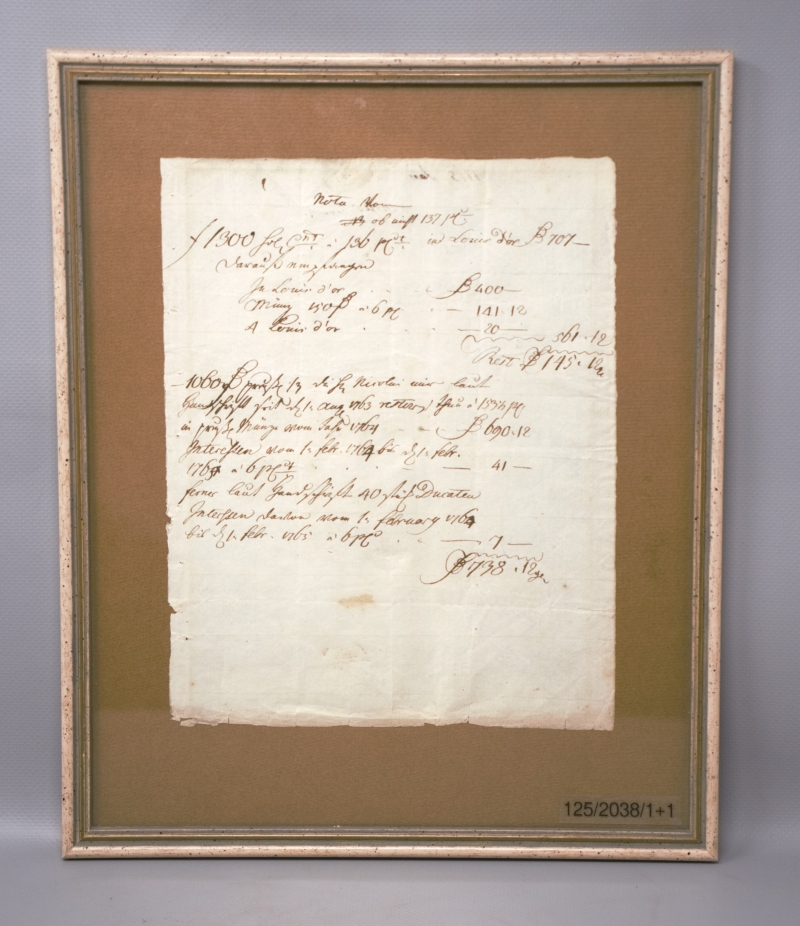 Nota
ob nicht 137 pCt
f 1300 à 136 pCt in Louis d'or 707 —
Darauf empfangen
In Louis d'or 400 —
Müntz 150 à 6 pC — 141.12
4 Louis d'or — 20 — 561.12
Rest 145.12 gr
1060 Nicolai mir laut
Handschrifft seit d. 1. Aug 1763 thun à
in Müntze vom Jahr 1764 690.12
Interessen vom 1. febr. 1764 bis d. 1. febr.
176 à 6 pCt — 41 —
ferner laut Handschrifft 40 stück Ducaten
Interessen davon vom 1. february 1764
bis d. 1. febr. 1765 à 6 pCt — 7 —
738.12 gr
125/2038/1+1